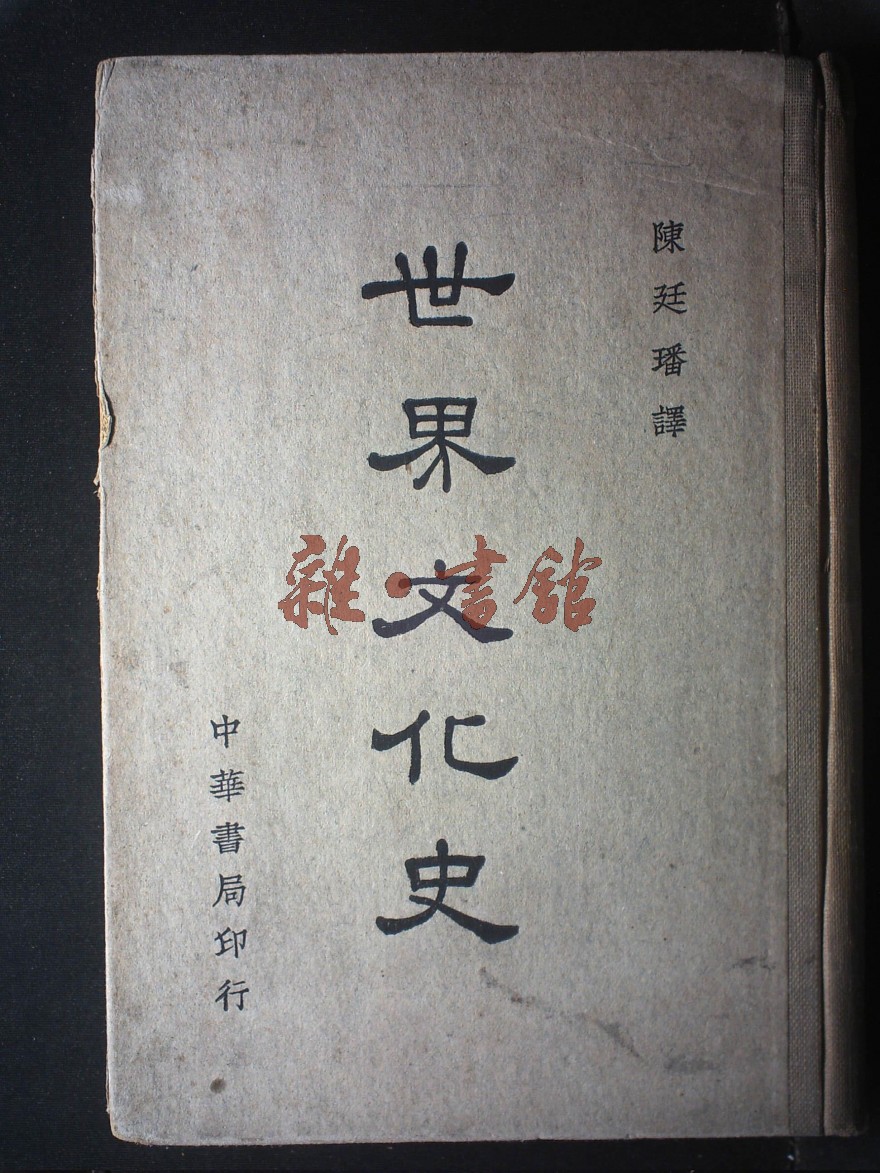 陳廷璠譯
世界文化史
中華書局印行
雜·書館